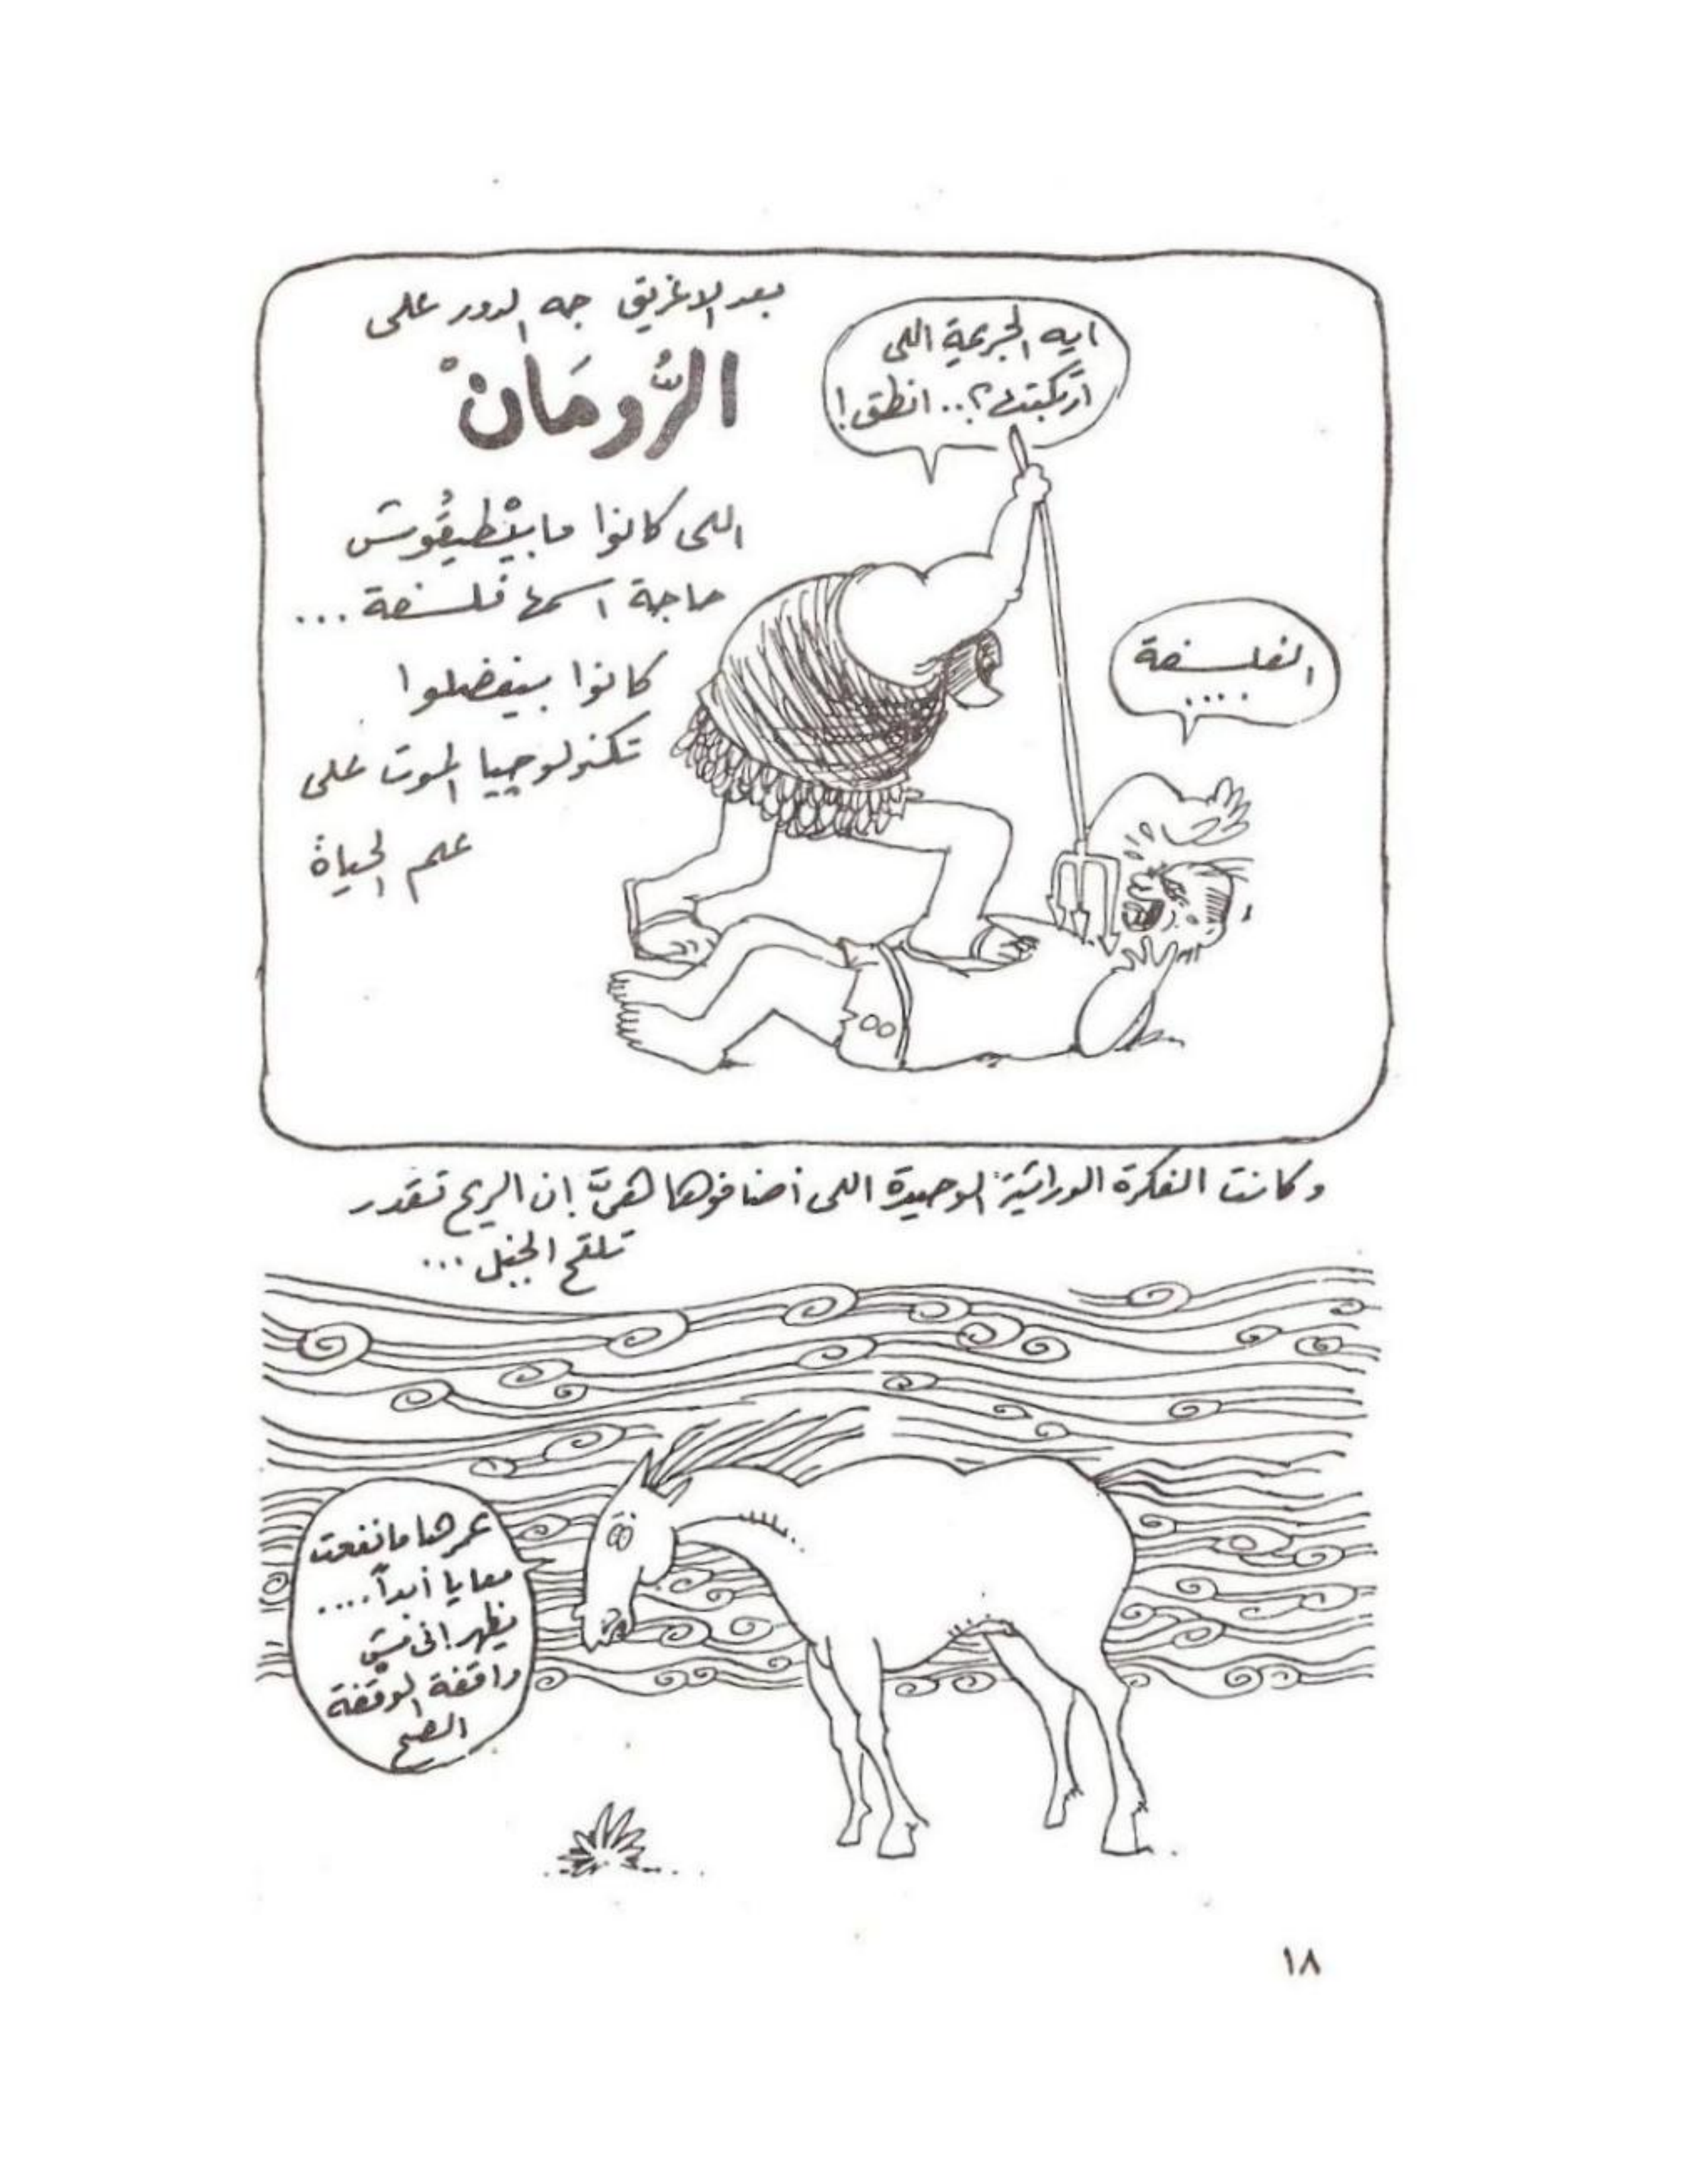 بعد الاغريق جه الدور على
الرُّومَانْ
اللى كانوا مابيْطيقُوش
حاجة اسمها فلسفة...
كانوا بيفضلوا
تكنولوجيا الموت على
علم الحياة
ايه الجريمة اللى
ارتكبتها؟.. انطق!
الفلسفة
....
وكانت الفكرة الوراثية الوحيدة اللى أضافوها هىَّ إن الريح تقدر
تلقح الخيل...
عمرها ما نفعت
معايا أبداً....
يظهر إنى مش
واقفة الوقفة
الصح
١٨